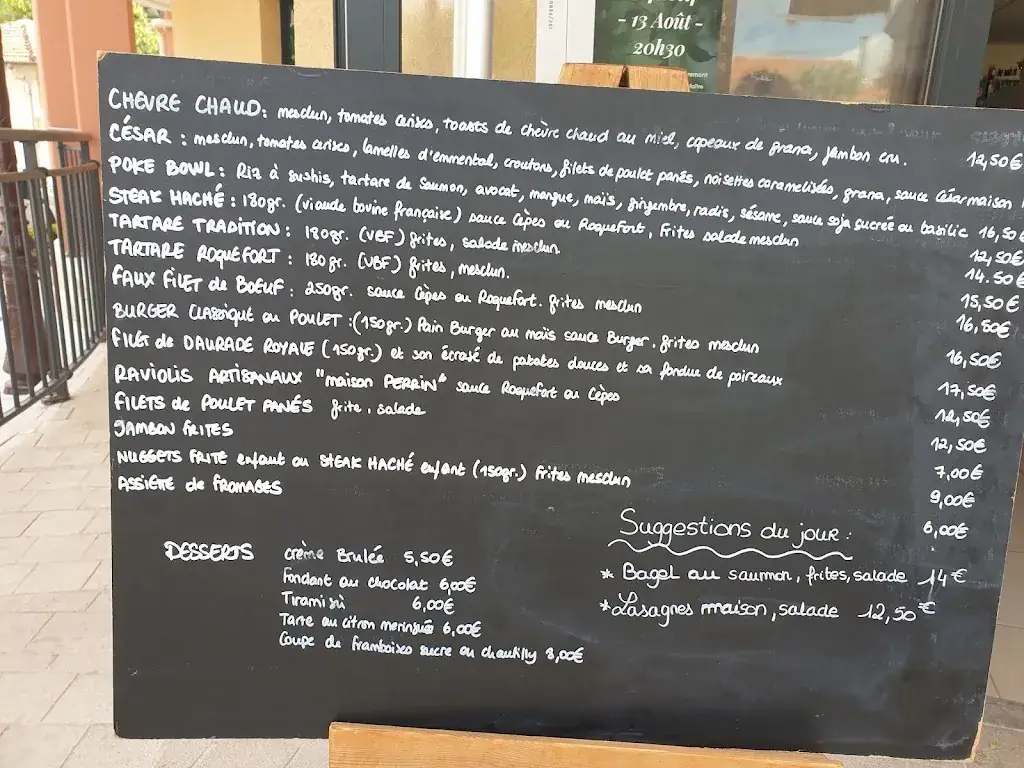 - 13 Août -
20h30
CHEVRE CHAUD: mesclun, tomates cerises, toasts de chèvre chaud au miel, copeaux de grana, jambon cru. 12,50€
CÉSAR : mesclun, tomates cerises, lamelles d'emmental, croutons, filets de poulet panés, noisettes caramelisées, grana, sauce César maison
POKE BOWL: Riz à sushis, tartare de Saumon, avocat, mangue, maïs, gingembre, radis, sésame, sauce soja sucrée ou basilic 16,50€
STEAK HACHÉ : 180gr. (viande bovine française) sauce Cèpes ou Roquefort, Frites salade mesclun 12,50€
TARTARE TRADITION : 180gr. (VBF) frites, salade mesclun. 14.50€
TARTARE ROQUEFORT : 180gr. (VBF) frites, mesclun. 15,50€
FAUX FILET de BOEUF : 250gr. sauce Cèpes ou Roquefort. frites mesclun 16,50€
BURGER Classique ou POULET :(150gr.) Pain Burger au maïs sauce Burger. frites mesclun 16,50€
FILET de DAURADE ROYALE (150gr.) et son écrasé de patates douces et sa fondue de poireaux 17,50€
RAVIOLIS ARTISANAUX "maison PERRIN" sauce Roquefort ou Cèpes 12,50€
FILETS de POULET PANÉS frite, salade 12,50€
JAMBON FRITES 7,00€
NUGGETS FRITE enfant ou STEAK HACHÉ enfant (150gr.) Frites mesclun 9,00€
ASSIETTE de FROMAGES 6,00€
DESSERTS
crème Brulée 5,50€
Fondant au chocolat 6,00€
Tiramisù 6,00€
Tarte au citron meringuée 6,00€
Coupe de framboises sucre ou chantilly 8,00€
Suggestions du jour :
* Bagel au saumon, frites, salade 14€
* Lasagnes maison, salade 12,50€